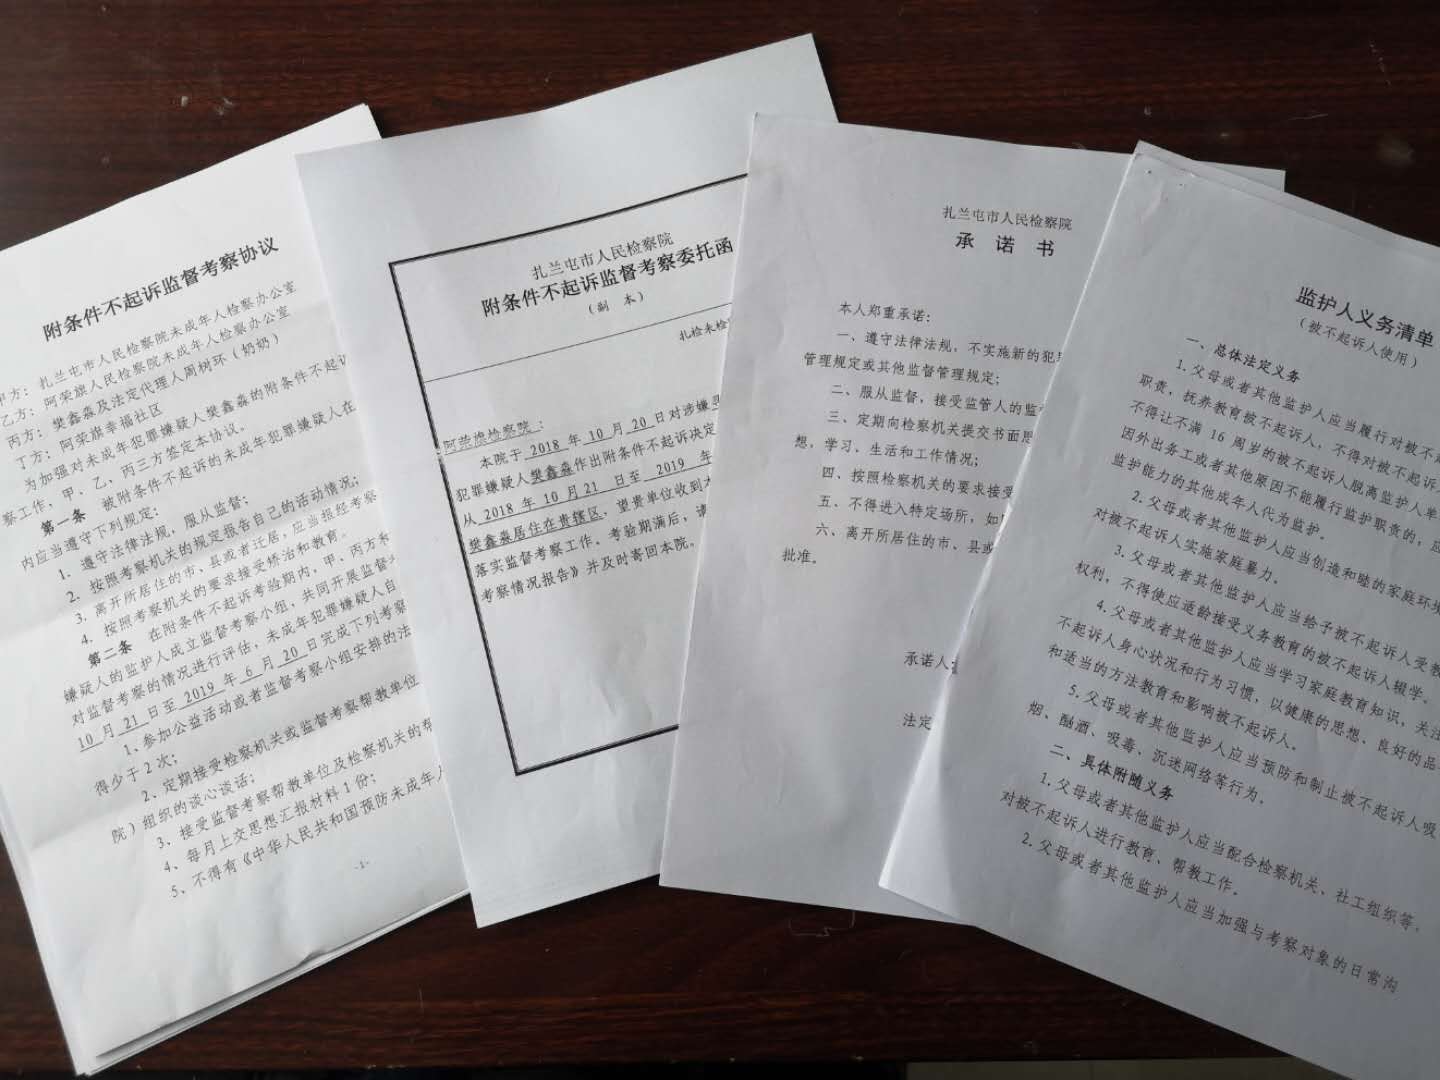 附条件不起诉监督考察协议
甲方：扎兰屯市人民检察院未成年人检察办公室
乙方：阿荣旗人民检察院未成年人检察办公室
丙方：樊鑫淼及法定代理人周树环（奶奶）
丁方：阿荣旗幸福社区
为加强对未成年犯罪嫌疑人樊鑫淼的附条件不起诉
察工作，甲、乙、丙三方签定本协议。
第一条 被附条件不起诉的未成年犯罪嫌疑人在
内应当遵守下列规定：
1. 遵守法律法规，服从监督；
2. 按照考察机关的规定报告自己的活动情况；
3. 离开所居住的市、县或者迁居，应当报经考察
4. 按照考察机关的要求接受矫治和教育。
第二条 在附条件不起诉考验期内，甲、丙方和
嫌疑人的监护人成立监督考察小组，共同开展监督
对监督考察的情况进行评估，未成年犯罪嫌疑人自
10 月 21 日至 2019 年 6 月 20 日完成下列考察
1、参加公益活动或者监督考察小组安排的法
得少于 2 次；
2、定期接受检察机关或监督考察帮教单位
院）组织的谈心谈话；
3、接受监督考察帮教单位及检察机关的帮
4、每月上交思想汇报材料 1 份；
5、不得有《中华人民共和国预防未成年人
-1-
扎兰屯市人民检察院
附条件不起诉监督考察委托函
（副 本）
扎检未检
阿荣旗检察院：
本院于 2018 年 10 月 20 日对涉嫌
犯罪嫌疑人樊鑫淼作出附条件不起诉决定
从 2018 年 10 月 21 日至 2019 年
樊鑫淼居住在贵辖区，望贵单位收到
落实监督考察工作。考验期满后，请
考察情况报告》并及时寄回本院。
扎兰屯市人民检察院
承 诺 书
本人郑重承诺：
一、遵守法律法规，不实施新的犯
管理规定或其他监督管理规定；
二、服从监督，接受监管人的监
三、定期向检察机关提交书面思
想，学习、生活和工作情况；
四、按照检察机关的要求接受
五、不得进入特定场所，如
六、离开所居住的市、县或
批准。
承诺人
法定
监护人义务清单
（被不起诉人使用）
一、总体法定义务
1.父母或者其他监护人应当履行对被不
职责，抚养教育被不起诉人，不得对被不起诉
不得让不满 16 周岁的被不起诉人脱离监护人单
因外出务工或者其他原因不能履行监护职责的，应
监护能力的其他成年人代为监护。
2.父母或者其他监护人应当创造和睦的家庭环境
对被不起诉人实施家庭暴力。
3.父母或者其他监护人应当给予被不起诉人受教
权利，不得使应适龄接受义务教育的被不起诉人辍学。
4.父母或者其他监护人应当学习家庭教育知识，关注
不起诉人身心状况和行为习惯，以健康的思想、良好的品
和适当的方法教育和影响被不起诉人。
5.父母或者其他监护人应当预防和制止被不起诉人吸
烟、酗酒、吸毒、沉迷网络等行为。
二、具体附随义务
1.父母或者其他监护人应当配合检察机关、社工组织等，
对被不起诉人进行教育、帮教工作。
2.父母或者其他监护人应当加强与考察对象的日常沟